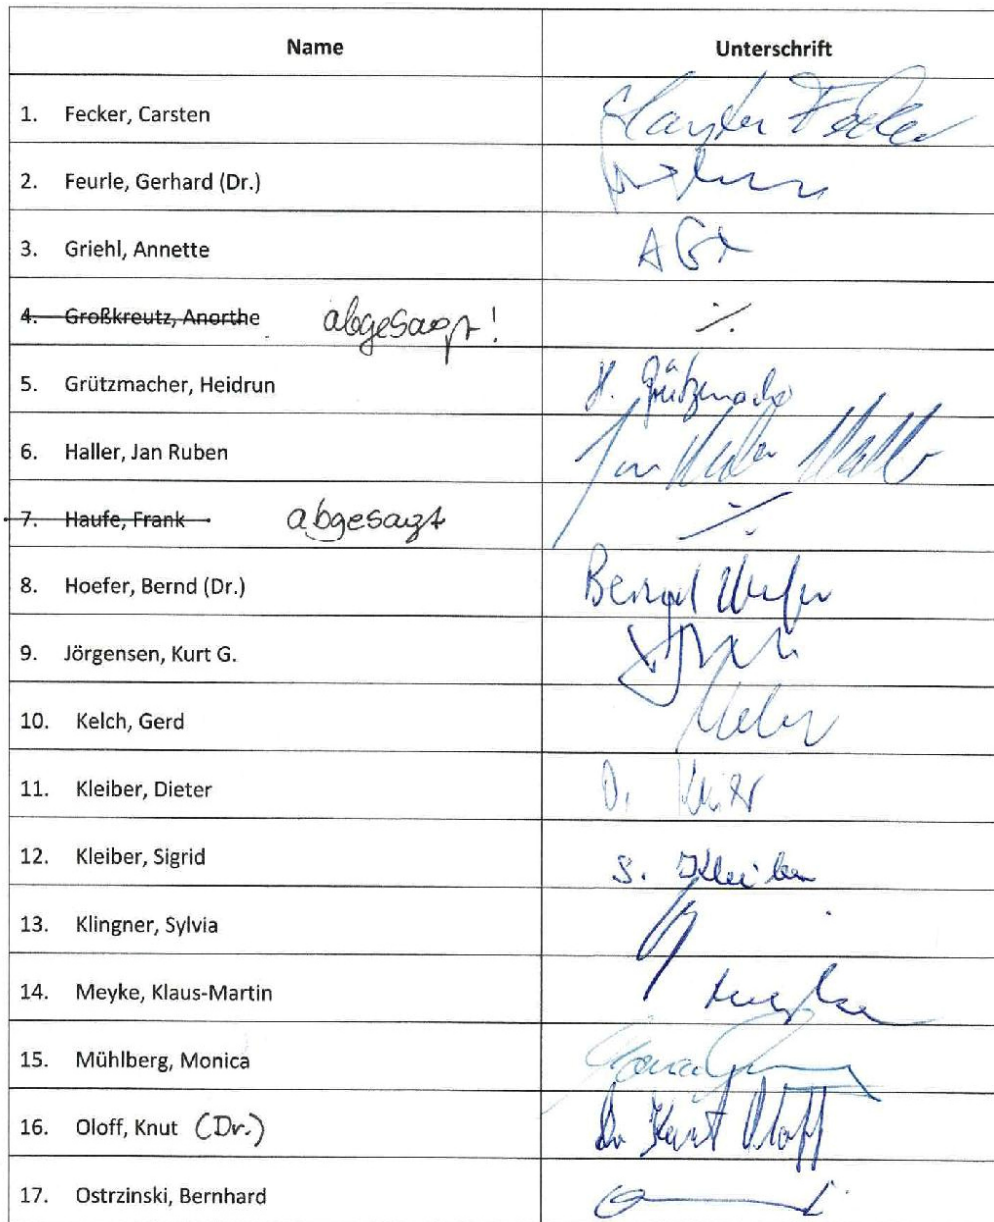 Name Unterschrift
1. Fecker, Carsten Carsten Fecker
2. Feurle, Gerhard (Dr.)
3. Griehl, Annette
4. Großkreutz, Anorthe abgesagt! ⁒
5. Grützmacher, Heidrun H. Grützmacher
6. Haller, Jan Ruben Jan Ruben Haller
7. Haufe, Frank abgesagt ⁒
8. Hoefer, Bernd (Dr.) Bernd Hoefer
9. Jörgensen, Kurt G.
10. Kelch, Gerd
11. Kleiber, Dieter D. Kleiber
12. Kleiber, Sigrid S. Kleiber
13. Klingner, Sylvia
14. Meyke, Klaus-Martin Meyke
15. Mühlberg, Monica
16. Oloff, Knut (Dr.) Dr Knut Oloff
17. Ostrzinski, Bernhard